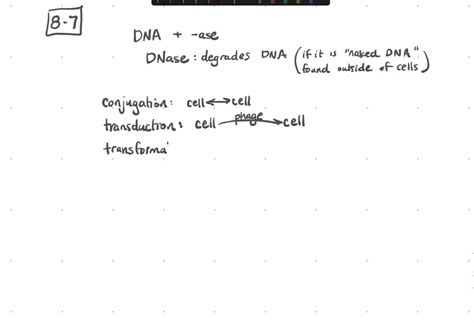 8-7
DNA + -ase
DNase: degrades DNA (if it is "naked DNA"
found outside of cells)
conjugation: cell ↔ cell
phage
transduction: cell → cell
transforma